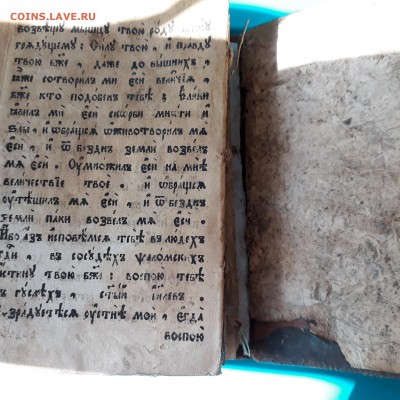 COINS.LAVE.RU
возвѣщꙋ мышцꙋ твою родꙋ
грядꙋщемꙋ: Силꙋ твою, и правдꙋ
твою бж҃е, даже до вышнихъ,
ꙗже сотворилъ ми єси величїѧ,
бж҃е кто подобенъ тебѣ; Єлики
ꙗвилъ ми єси скорби многи и
ѕлы, и ѡбращсѧ ѡживотворилъ мѧ
єси, и ѿ бездн землѝ возвел
мѧ єси. Оумножилъ єси на мнѣ
величествїе твое. и ѡбращсѧ
оутѣшилъ мѧ єси, и ѿ бездн
земли паки возвел мѧ єси.
Ибо азъ исповѣмсѧ тебѣ в людех
гд҃и, въ сосꙋдѣхъ ѱаломскихъ
истинꙋ твою бж҃е: воспою тебѣ
въ гꙋслехъ, ст҃ый ізл҃евъ.
возрадꙋетѣсѧ оустнѣ мои, єгда
воспою